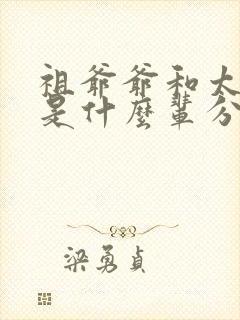 祖爷爷和太
是什麼輩分
梁勇貞